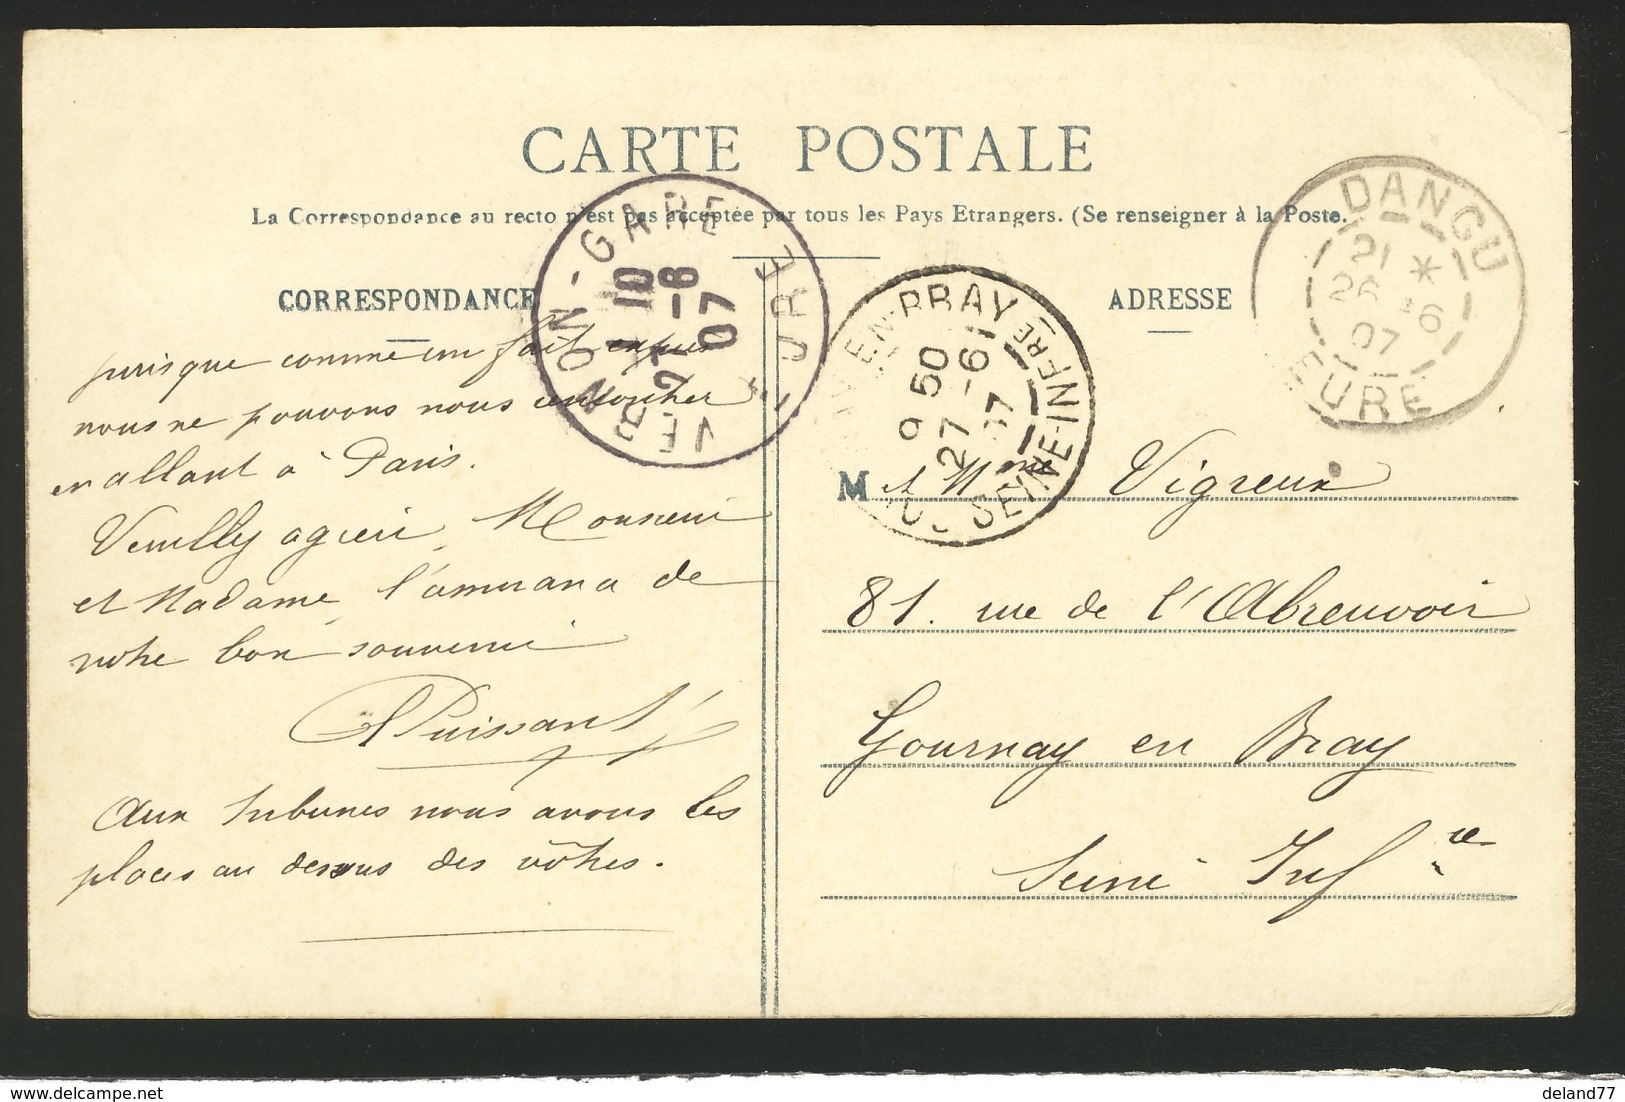 CARTE POSTALE
La Correspondance au recto n'est pas acceptée par tous les Pays Etrangers. (Se renseigner à la Poste.
CORRESPONDANCE
ADRESSE
puisque comme un fait exprès
nous ne pouvons nous
en allant à Paris.
Veuillez agréer, Monsieur
et Madame, l'assurance de
notre bon souvenir
Puissant
Aux tribunes nous avons les
places au dessous des vôtres.
M et Mme Vigreux
81. rue de l'Abreuvoir
Gournay en Bray
Seine Infre
VERNON-GARE
EURE
10
27 -6
07
EN-BRAY
SEINE-INFRE
9 50
27 -6
07
DANGU
EURE
21 *
26 -6
07
delcampe.net
deland77